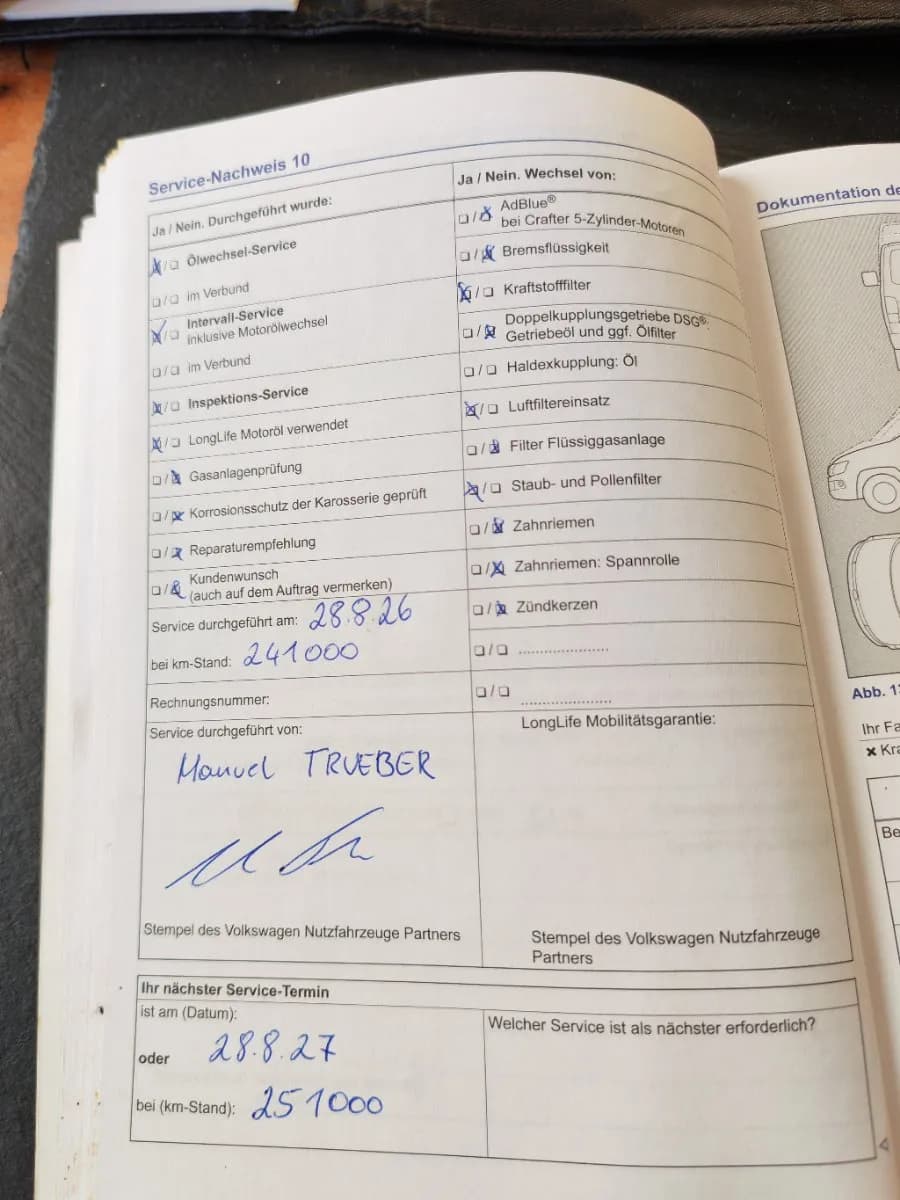 Service-Nachweis 10
Ja / Nein. Durchgeführt wurde:
☒/☐ Ölwechsel-Service
☐/☐ im Verbund
☒/☐ Intervall-Service
inklusive Motorölwechsel
☐/☐ im Verbund
☒/☐ Inspektions-Service
☒/☐ LongLife Motoröl verwendet
☐/☒ Gasanlagenprüfung
☐/☒ Korrosionsschutz der Karosserie geprüft
☐/☒ Reparaturempfehlung
☐/☒ Kundenwunsch
(auch auf dem Auftrag vermerken)
Service durchgeführt am: 28.8.26
bei km-Stand: 241000
Rechnungsnummer:
Service durchgeführt von:
Manuel TRUEBER
Stempel des Volkswagen Nutzfahrzeuge Partners
Ja / Nein. Wechsel von:
☐/☒ AdBlue®
bei Crafter 5-Zylinder-Motoren
☐/☒ Bremsflüssigkeit
☒/☐ Kraftstofffilter
☐/☒ Doppelkupplungsgetriebe DSG®:
Getriebeöl und ggf. Ölfilter
☐/☐ Haldexkupplung: Öl
☒/☐ Luftfiltereinsatz
☐/☒ Filter Flüssiggasanlage
☒/☐ Staub- und Pollenfilter
☐/☒ Zahnriemen
☐/☒ Zahnriemen: Spannrolle
☐/☒ Zündkerzen
☐/☐ .....................
☐/☐ .....................
LongLife Mobilitätsgarantie:
Stempel des Volkswagen Nutzfahrzeuge
Partners
Ihr nächster Service-Termin
ist am (Datum):
oder 28.8.27
bei (km-Stand): 251000
Welcher Service ist als nächster erforderlich?
Dokumentation de
Abb. 1
Ihr Fa
× Kra
Be